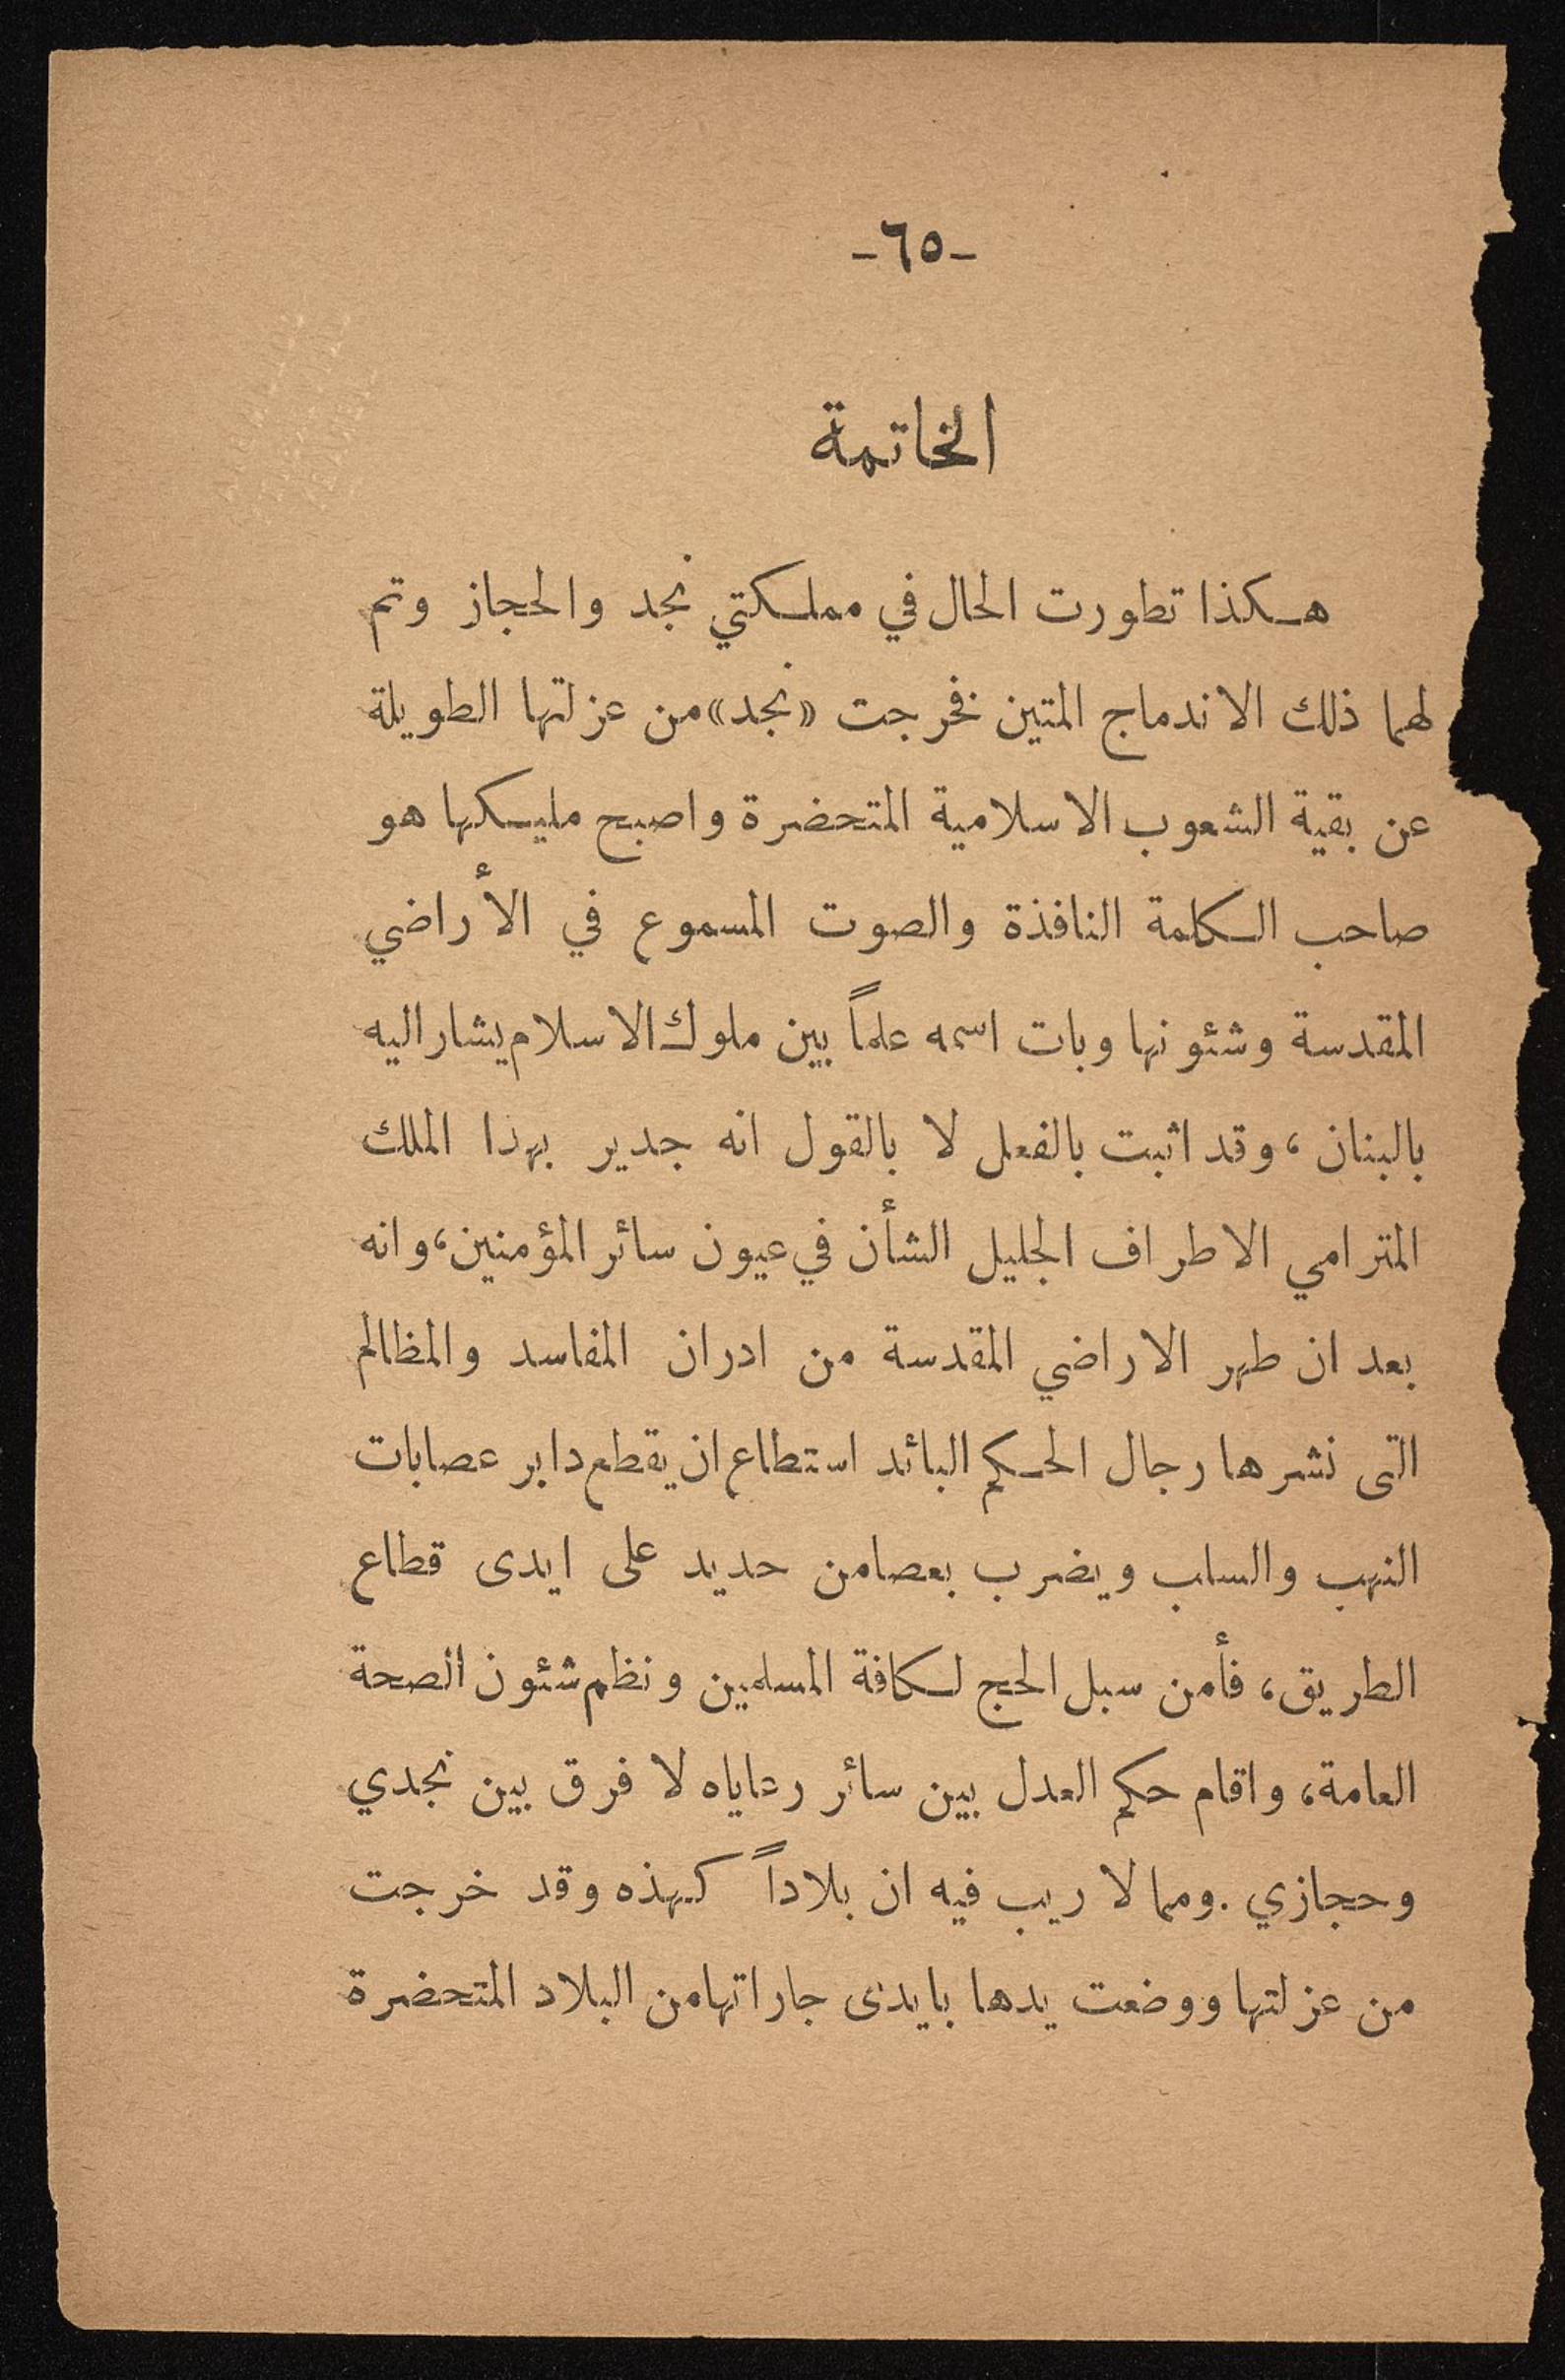 -٦٥-
الخاتمة
هكذا تطورت الحال في مملكتي نجد والحجاز وتم
لهما ذلك الاندماج المتين فخرجت «نجد» من عزلتها الطويلة
عن بقية الشعوب الاسلامية المتحضرة واصبح مليكها هو
صاحب الكلمة النافذة والصوت المسموع في الأراضي
المقدسة وشئونها وبات اسمه علماً بين ملوك الاسلام يشار اليه
بالبنان، وقد اثبت بالفعل لا بالقول انه جدير بهذا الملك
المترامي الاطراف الجليل الشأن في عيون سائر المؤمنين، وانه
بعد ان طهر الاراضي المقدسة من ادران المفاسد والمظالم
التى نشرها رجال الحكم البائد استطاع ان يقطع دابر عصابات
النهب والسلب ويضرب بعصا من حديد على ايدى قطاع
الطريق، فأمن سبل الحج لكافة المسلمين ونظم شئون الصحة
العامة، واقام حكم العدل بين سائر رعاياه لا فرق بين نجدي
وحجازي. ومما لا ريب فيه ان بلاداً كهذه وقد خرجت
من عزلتها ووضعت يدها بايدى جاراتها من البلاد المتحضرة